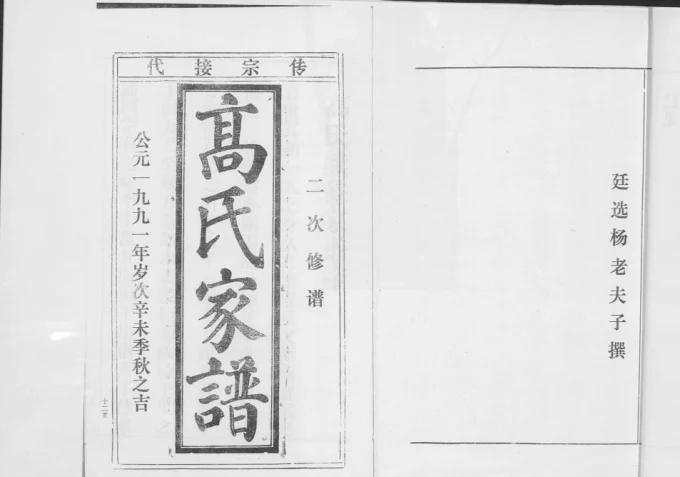 廷选杨老夫子撰
传宗接代
二次修谱
高氏家譜
公元一九九一年岁次辛未季秋之吉